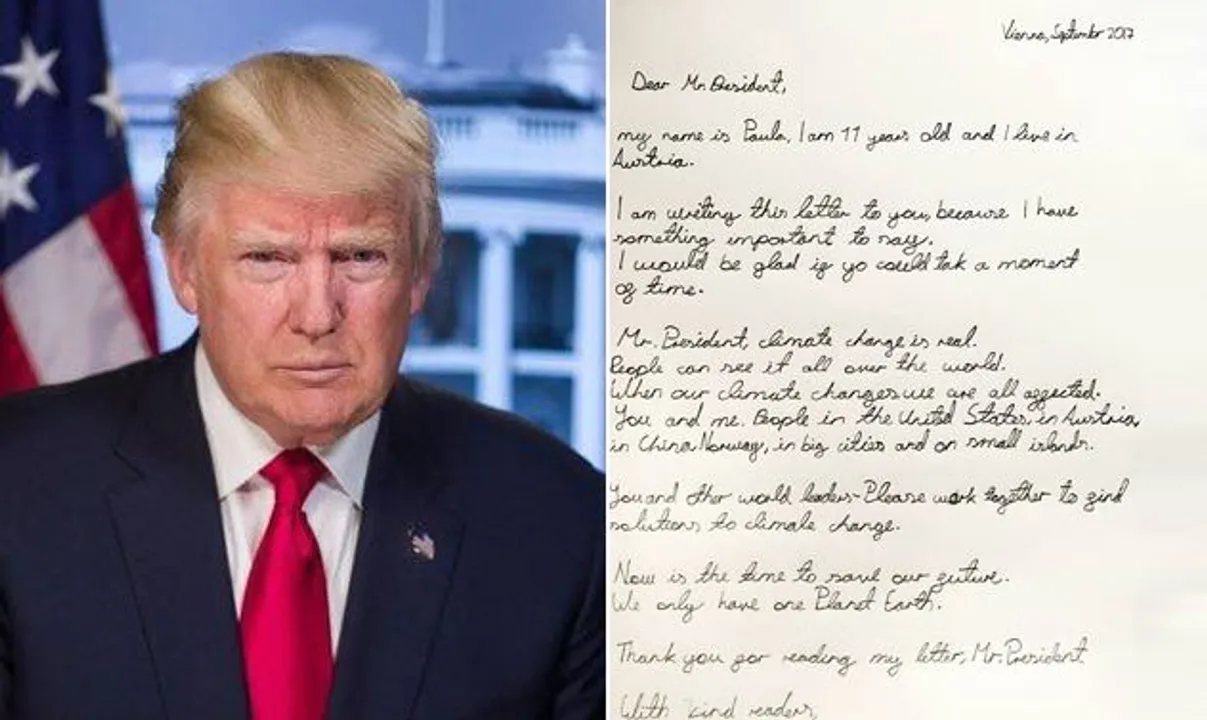 Vienna, September 2017
Dear Mr. President,
my name is Paula, I am 11 years old and I live in
Austria.
I am writing this letter to you, because I have
something important to say.
I would be glad if yo could tak a moment
of time.
Mr. President, climate change is real.
People can see it all over the world.
When our climate changes we are all affected.
You and me. People in the United States, in Austria,
in China, Norway, in big cities and on small islands.
You and other world leaders - Please work together to find
solutions to climate change.
Now is the time to save our future.
We only have one Planet Earth.
Thank you for reading my letter, Mr. President
With kind readers,